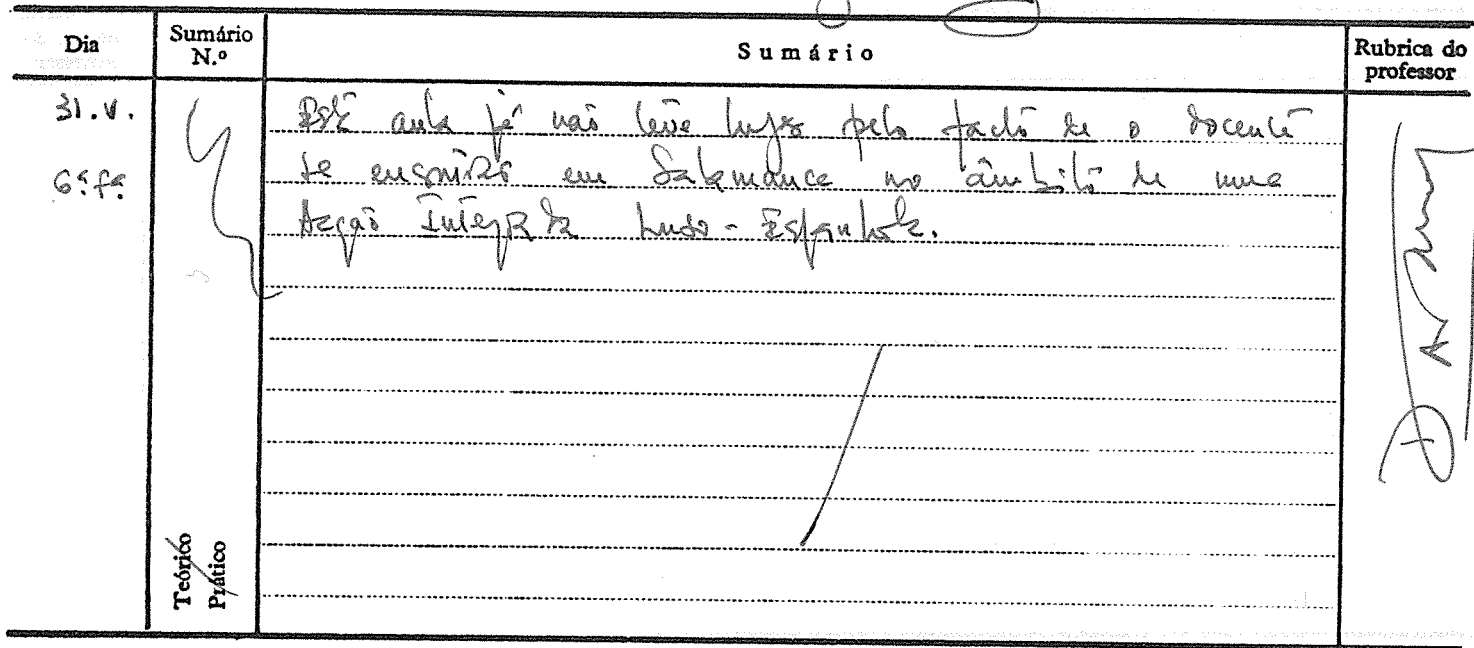 Dia
Sumário N.º
Sumário
Rubrica do professor
31.V.
6ª fª
Esta aula já não teve lugar pelo facto de o docente
se encontrar em Salamanca no âmbito de uma
Acção Integrada Luso-Espanhola.
Teórico
Prático